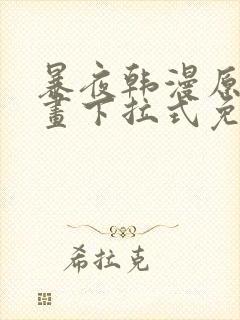 暴夜韩漫原
畫下拉式免
希拉克